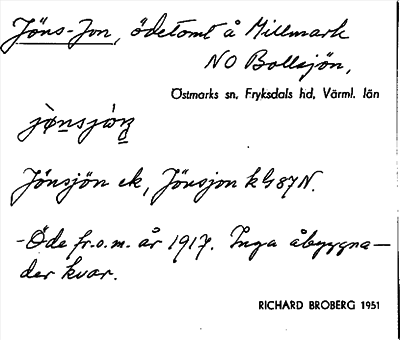 Jöns-Jon, ödetomt å Millmark
NO Bollsjön,
Östmarks sn, Fryksdals hd, Värml. län
Jönsjön ek, Jönsjon kG87N.
-Öde fr.o.m. år 1917. Inga åbyggna-
der kvar.
RICHARD BROBERG 1951